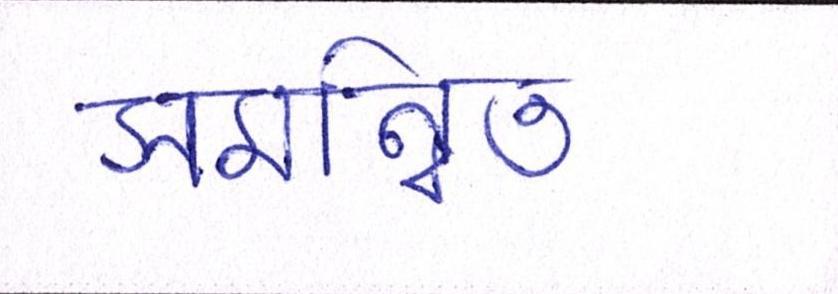 সমন্বিত